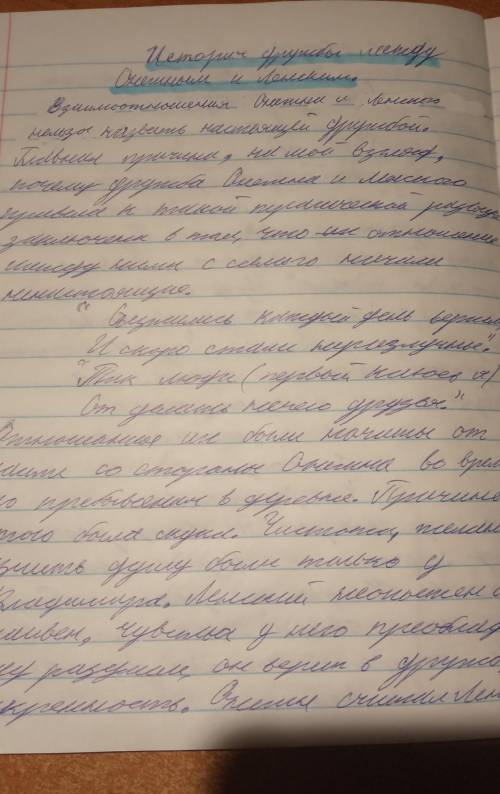 История дружбы между
Онегиным и Ленским.
Взаимоотношения Онегина и Ленского
нельзя назвать настоящей дружбой.
Главная причина, на мой взгляд,
почему дружба Онегина и Ленского
пришла к такой трагической развяз
заключена в том, что отношения
между ними с самого начала
ненастоящие.
"Съезжались каждый день верхом
И скоро стали неразлучны".
"Так люди (первый каюсь я)
От делать нечего друзья."
Отношения их были начаты от
со стороны Онегина во врем
его пребывания в деревне. Причине
этого была скука. Чистота, желан
излить душу были только у
Владимира. Ленский неопытен и
наивен, чувства у него преоблад
над разумом, он верит в дружб
искренность. Онегин считал Лен